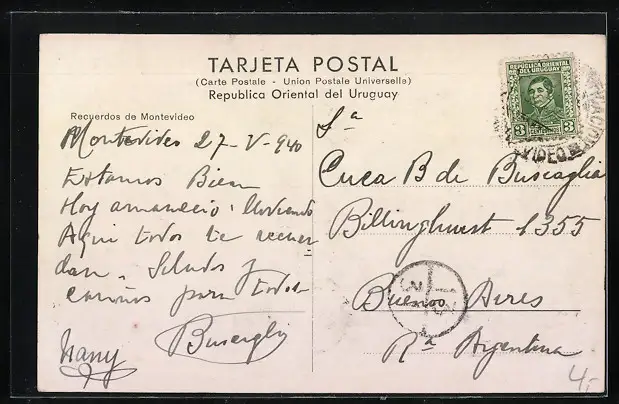 TARJETA POSTAL
(Carte Postale - Union Postale Universelle)
Republica Oriental del Uruguay
Recuerdos de Montevideo
Montevideo 27-V-940
Estamos Bien
Hoy amanecio lloviendo
Aqui todos te recuer
dan. Saludos y
cariños para todos
Buscaglia
Nany
REPUBLICA ORIENTAL
DEL URUGUAY
3 3
VIDEO
Sa
Cuca B de Buscaglia
Billinghurst 1355
Buenos Aires
Ra Argentina
4,-